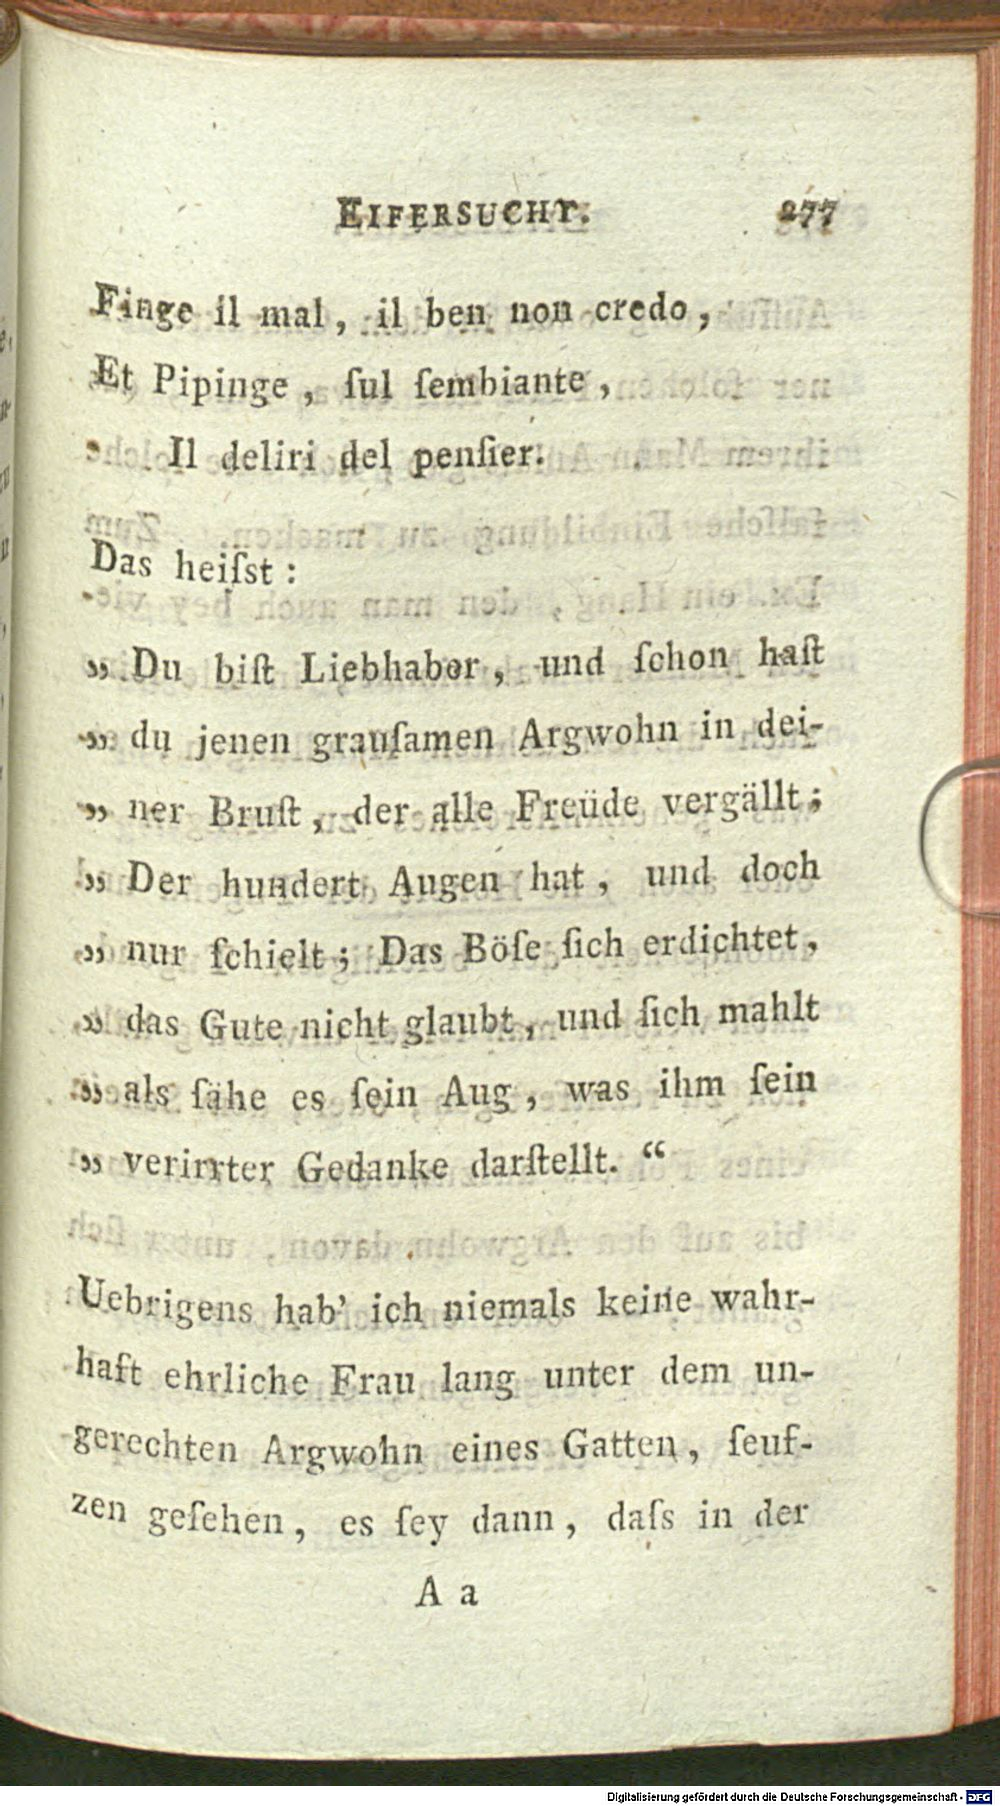 EIFERSUCHT. 277
Finge il mal, il ben non credo,
Et Pipinge, ſul ſembiante,
Il deliri del penſier.
Das heiſst:
„ Du biſt Liebhaber, und ſchon haſt
„ du jenen grauſamen Argwohn in dei-
„ ner Bruſt, der alle Freüde vergällt;
„ Der hundert Augen hat, und doch
„ nur ſchielt; Das Böſe ſich erdichtet,
„ das Gute nicht glaubt, und ſich mahlt
„ als ſähe es ſein Aug, was ihm ſein
„ verirrter Gedanke darſtellt. “
Uebrigens hab' ich niemals keine wahr-
haft ehrliche Frau lang unter dem un-
gerechten Argwohn eines Gatten, ſeuf-
zen geſehen, es ſey dann, daſs in der
A a
Digitalisierung gefördert durch die Deutsche Forschungsgemeinschaft - DFG